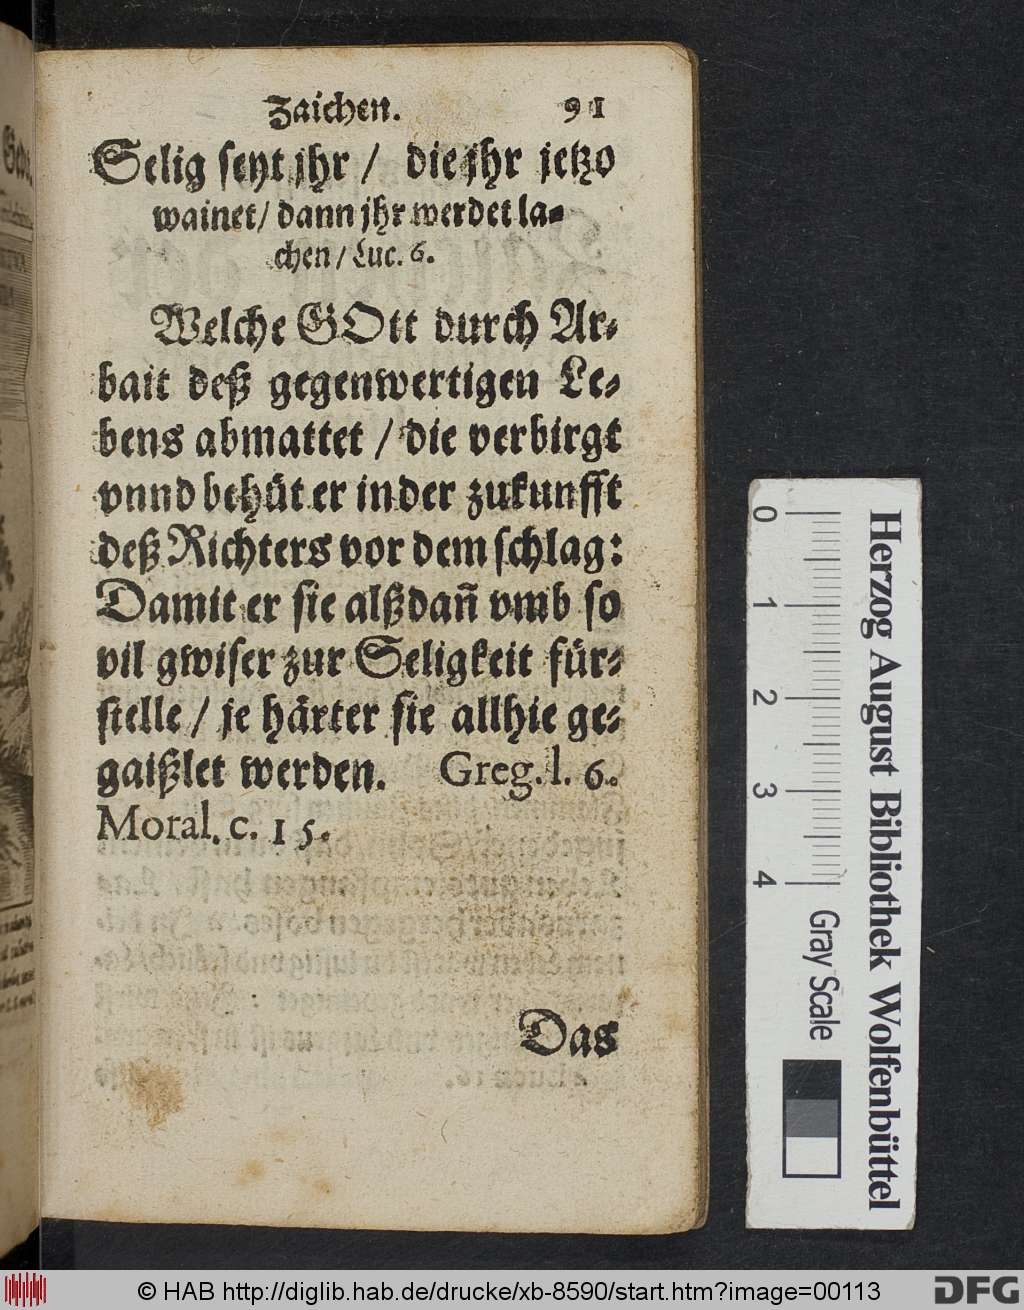 Zaichen. 91
Selig seyt jhr / die jhr jetzo
wainet / dann jhr werdet la-
chen / Luc. 6.
Welche GOtt durch Ar-
bait deß gegenwertigen Le-
bens abmattet / die verbirgt
vnnd behüt er in der zukunfft
deß Richters vor dem schlag:
Damit er sie alßdañ vmb so
vil gwiser zur Seligkeit für-
stelle / je härter sie allhie ge-
gaißlet werden. Greg. l. 6.
Moral. c. 15.
Das
0 1 2 3 4 Gray Scale
Herzog August Bibliothek Wolfenbüttel
© HAB http://diglib.hab.de/drucke/xb-8590/start.htm?image=00113
DFG